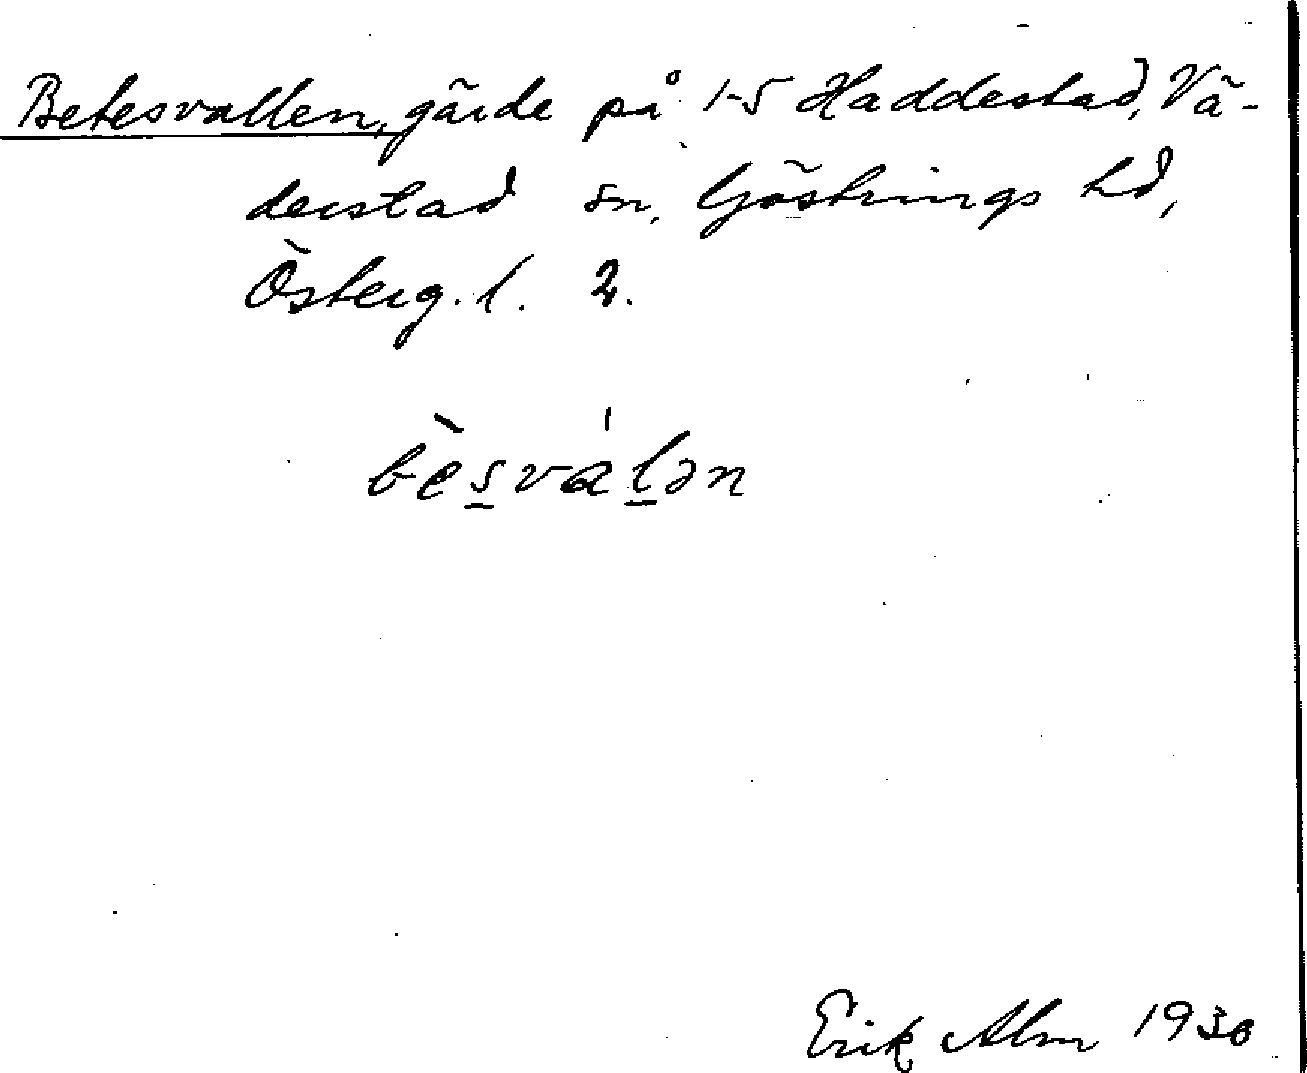 Betesvallen, gärde på 1-5 Haddestad, Vä-
derstad sn, Göstrings hd,
Österg. l. 2.
bèsválən
Erik Alm 1930